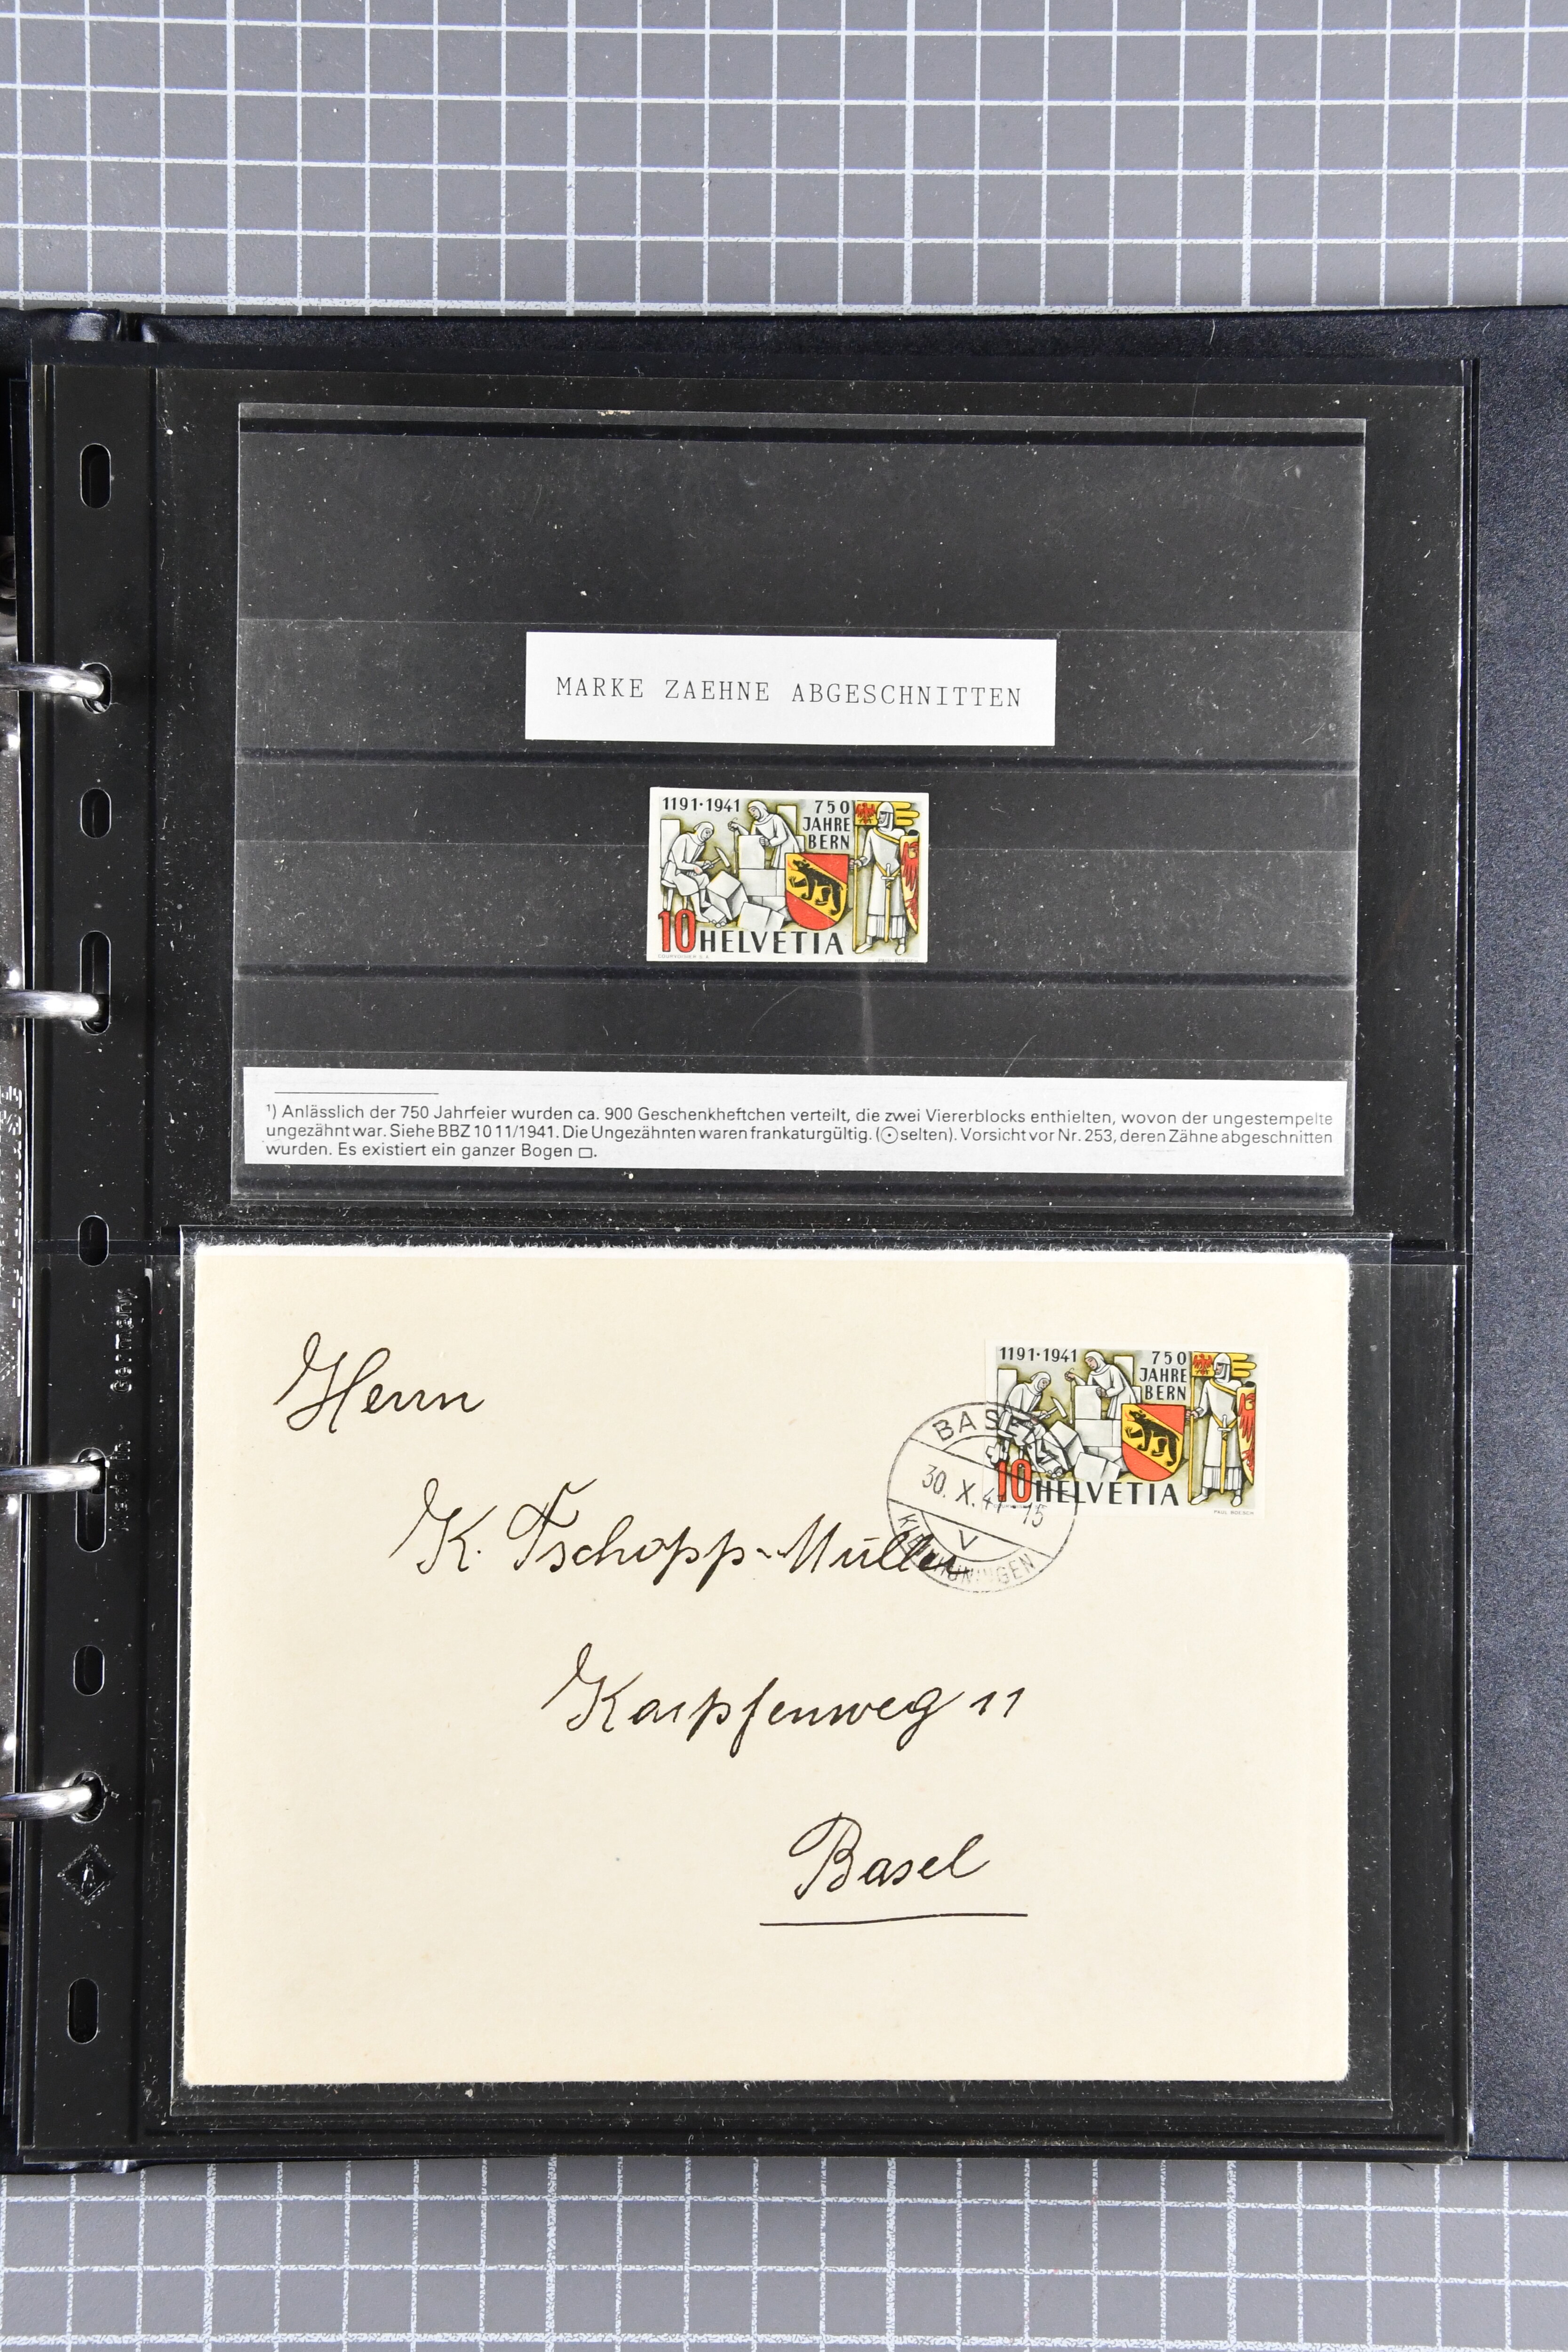 MARKE ZAEHNE ABGESCHNITTEN
1191·1941 750
JAHRE
BERN
10 HELVETIA
COURVOISIER S.A. PAUL BOESCH
¹) Anlässlich der 750 Jahrfeier wurden ca. 900 Geschenkheftchen verteilt, die zwei Viererblocks enthielten, wovon der ungestempelte
ungezähnt war. Siehe BBZ 10 11/1941. Die Ungezähnten waren frankaturgültig. (⊙ selten). Vorsicht vor Nr. 253, deren Zähne abgeschnitten
wurden. Es existiert ein ganzer Bogen □.
1191·1941 750
JAHRE
BERN
10 HELVETIA
PAUL BOESCH
BASEL
30. X. 41 – 15
V
KLEINHÜNINGEN
Herrn
K. Tschopp-Müller
Karpfenweg 11
Basel
Germany